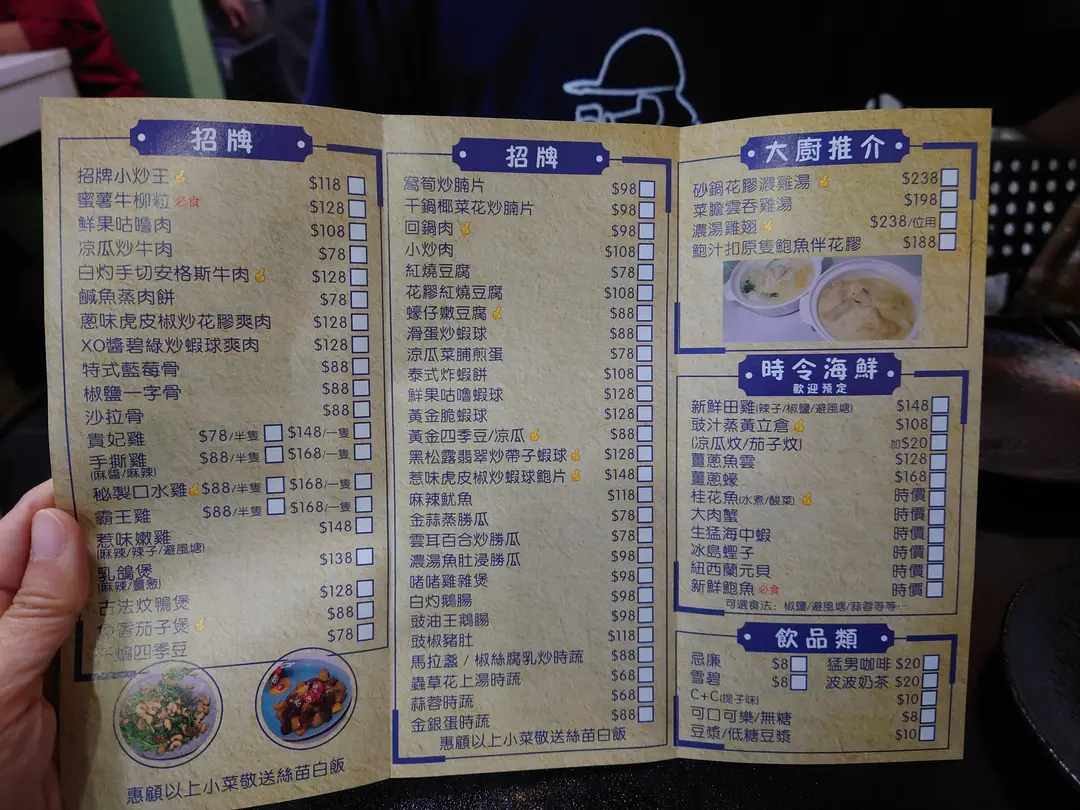 招牌
招牌小炒王 $118
蜜薯牛柳粒 必食 $128
鮮果咕嚕肉 $108
凉瓜炒牛肉 $78
白灼手切安格斯牛肉 $128
鹹魚蒸肉餅 $78
蔥味虎皮椒炒花膠爽肉 $128
XO醬碧綠炒蝦球爽肉 $128
特式藍莓骨 $88
椒鹽一字骨 $88
沙拉骨 $88
貴妃雞 $78/半隻 $148/一隻
手撕雞 $88/半隻 $168/一隻
(麻醬/麻辣)
秘製口水雞 $88/半隻 $168/一隻
霸王雞 $88/半隻 $168/一隻
惹味嫩雞 $148
(麻辣/辣子/避風塘)
乳鴿煲 $138
(麻辣/薑蔥)
古法炆鴨煲 $128
香茄子煲 $88
煸四季豆 $78
惠顧以上小菜敬送絲苗白飯
招牌
窩筍炒腩片 $98
干鍋椰菜花炒腩片 $98
回鍋肉 $98
小炒肉 $108
紅燒豆腐 $78
花膠紅燒豆腐 $108
蠔仔嫩豆腐 $88
滑蛋炒蝦球 $88
涼瓜菜脯煎蛋 $78
泰式炸蝦餅 $108
鮮果咕嚕蝦球 $128
黃金脆蝦球 $128
黃金四季豆/涼瓜 $88
黑松露翡翠炒帶子蝦球 $128
惹味虎皮椒炒蝦球鮑片 $148
麻辣魷魚 $118
金蒜蒸勝瓜 $78
雲耳百合炒勝瓜 $78
濃湯魚肚浸勝瓜 $98
啫啫雞雜煲 $98
白灼鵝腸 $98
豉油王鵝腸 $98
豉椒豬肚 $118
馬拉盞 / 椒絲腐乳炒時蔬 $88
蟲草花上湯時蔬 $68
蒜蓉時蔬 $68
金銀蛋時蔬 $88
惠顧以上小菜敬送絲苗白飯
大廚推介
砂鍋花膠濃雞湯 $238
菜膽雲吞雞湯 $198
濃湯雞翅 $238/位用
鮑汁扣原隻鮑魚伴花膠 $188
時令海鮮
歡迎預定
新鮮田雞(辣子/椒鹽/避風塘) $148
豉汁蒸黃立倉 $108
(凉瓜炆/茄子炆) 加$20
薑蔥魚雲 $128
薑蔥蠔 $168
桂花魚(水煮/酸菜) 時價
大肉蟹 時價
生猛海中蝦 時價
冰島蟶子 時價
紐西蘭元貝 時價
新鮮鮑魚 必食 時價
可選食法：椒鹽/避風塘/蒜蓉等等…
飲品類
忌廉 $8 猛男咖啡 $20
雪碧 $8 波波奶茶 $20
C+C(提子味) $10
可口可樂/無糖 $8
豆漿/低糖豆漿 $10